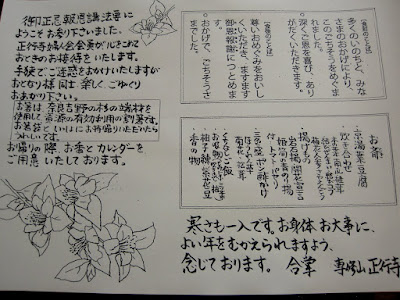 御正忌報恩講法要に
ようこそお参り下さいました。
正行寺婦人会会員が心をこめて
おときのお接待をいたします。
手狭でご迷惑をおかけいたしますが
おとなり様同士楽しくごゆっくり
おまわり下さい。
お箸は奈良吉野の杉の端材を
使用して資源の有効利用の割箸です。
お箸袋といっしょにお持ち帰りいただけたら
うれしいです。
お帰りの際、お香とカレンダーを
ご用意いたしております。
【食前のことば】
多くのいのちと、みな
さまのおかげにより、
このごちそうをめぐま
れました。
深くご恩を喜び、あり
がたくいただきます。
【食後のことば】
尊いおめぐみをおいし
くいただき、ますます
御恩報謝につとめます。
おかげで、ごちそうさ
までした。
お斎
・京湯葉豆腐
・炊き合せ
・揚げもの
・くちなしご飯
・香の物
寒さも一入です。お身体お大事に、
よい年をむかえられますよう、
念じております。 合掌 専修山 正行寺